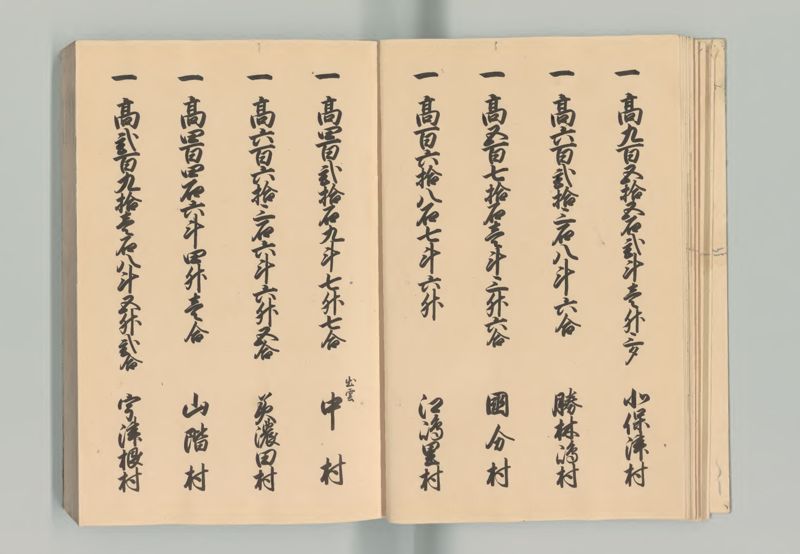 一 髙九百五拾五石弐斗壱升三夕 保津村
一 髙六百弐拾三石八斗六合 勝林嶋村
一 髙五百七拾石壱斗三升六合 國分村
一 髙百六拾八石七斗六升 江嶋里村
一 髙四百弐拾石九斗七升七合 出雲 中村
一 髙六百六拾三石六斗六升五合 美濃田村
一 髙四百四石六斗四升壱合 山階村
一 髙弐百九拾壱石八斗五升弐合 宇津根村